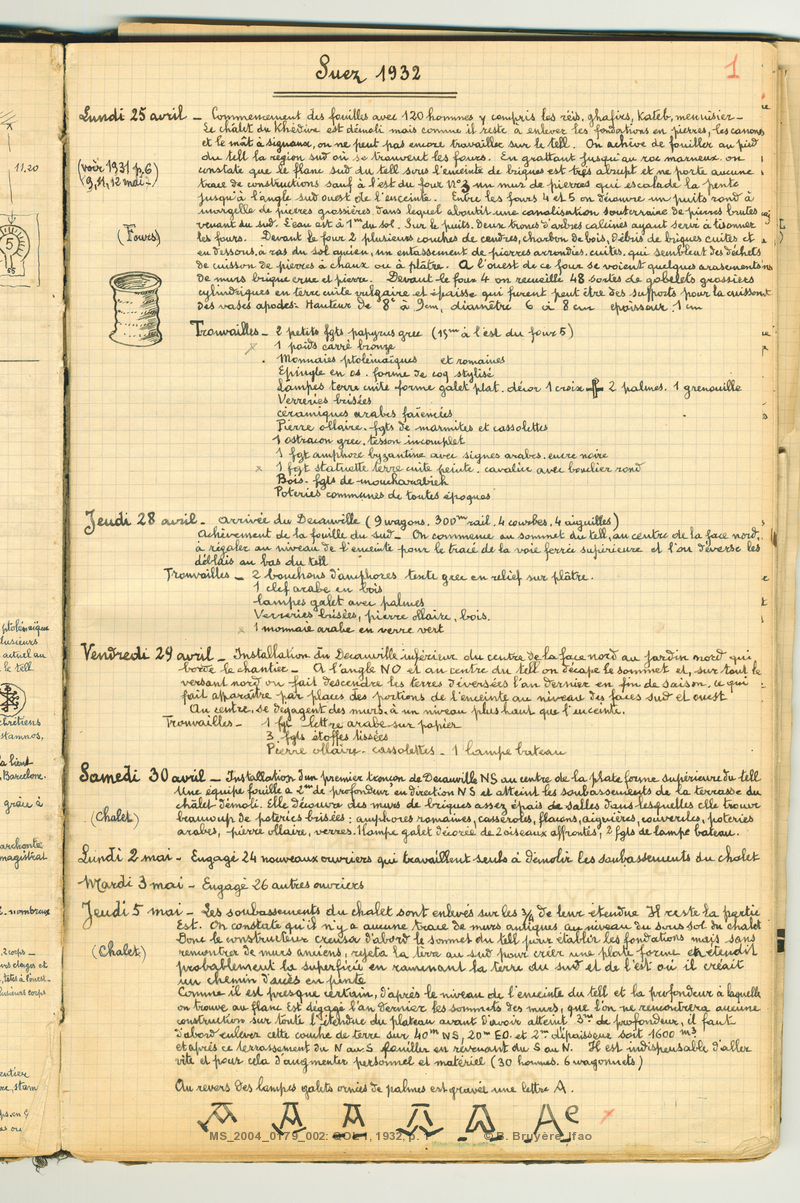 Suez 1932
1
Lundi 25 avril _ Commencement des fouilles avec 120 hommes y compris les réis, ghafirs, Kateb, menuisier _
Le chalet du Khédive est démoli mais comme il reste à enlever les fondations en pierres, les canons
et le mât à signaux, on ne peut pas encore travailler sur le tell. On achève de fouiller au pied
(voir 1931 p.6)
9, 11, 12 mai-)
du tell la région sud où se trouvent les fours. En grattant jusqu'au roc marneux on
constate que le flanc sud du tell sous l'enceinte de briques est très abrupt et ne porte aucune
trace de constructions sauf à l'est du four N°3 un mur de pierres qui escalade la pente
jusqu'à l'angle sud ouest de l'enceinte. Entre les fours 4 et 5 on découvre un puits rond à
margelle de pierres grossières dans lequel aboutit une canalisation souterraine de pierres brutes
(Fours)
venant du sud. L'eau est à 1m du sol. Sur le puits deux troncs d'arbres calcinés ayant servi à
les fours. Devant le four 2 plusieurs couches de cendres, charbon de bois, débris de briques cuites et
en dessous, à ras du sol ancien, un entassement de pierres arrondies, cuites, qui semblent des déchets
de cuisson de pierres à chaux ou à plâtre. A l'ouest de ce four se voient quelques arasements
de murs brique crue et pierre. Devant le four 4 on recueille 48 sortes de gobelets grossiers
cylindriques en terre cuite vulgaire et épaisse qui furent peut être des supports pour la cuisson
des vases apodes- Hauteur de 8 à 9cm, diamètre 6 à 8 cm épaisseur 1 cm
Trouvailles _ 2 petits fgts papyrus grec (15m à l'est du four 5)
1 poids carré bronze
Monnaies ptolémaïques et romaines
Epingle en os . forme de coq stylisé
Lampes terre cuite forme galet plat. décor 1 croix 2 palmes. 1 grenouille
Verreries brisées
céramiques arabes faïencées
Pierre ollaire. fgts de marmites et cassolettes
1 ostracon grec, tesson incomplet
1 fgt amphore byzantine avec signes arabes. encre noire
x 1 fgt statuette terre cuite peinte. cavalier avec bouclier rond
Bois. fgts de moucharabieh
Poteries communes de toutes époques
Jeudi 28 avril _ Arrivée du Decauville (9 wagons. 300m rail. 4 courbes. 4 aiguilles)
Achèvement de la fouille du sud _ On commence au sommet du tell, au centre de la face nord,
à régaler au niveau de l'enceinte pour le tracé de la voie ferrée supérieure et l'on déverse les
déblais au bas du tell
Trouvailles _ 2 bouchons d'amphores texte grec en relief sur plâtre.
1 clef arabe en bois
lampes galet avec palmes
Verreries brisées, pierre ollaire, bois.
1 monnaie arabe en verre vert
Vendredi 29 avril _ Installation du Decauville inférieur du centre de la face nord au jardin nord qui
borde le chantier _ A l'angle NO et au centre du tell on décape le sommet et, sur tout le
versant nord on fait descendre les terres déversées l'an dernier en fin de saison, ce qui
fait apparaître par places des portions de l'enceinte au niveau des faces sud et ouest
Au centre, se dégagent des murs, à un niveau plus haut que l'enceinte.
Trouvailles _ 1 fgt lettre arabe sur papier
3 fgts étoffes tissées
Pierre ollaire. cassolettes _ 1 lampe bateau
Samedi 30 avril _ Installation d'un premier tronçon de Decauville NS au centre de la plateforme supérieure du tell
Une équipe fouille à 2m de profondeur en direction NS et atteint les soubassements de la terrasse du
chalet démoli. Elle découvre des murs de briques assez épais de salles dans lesquelles elle trouve
(Chalet)
beaucoup de poteries brisées : amphores romaines, casseroles, flacons, aiguières, couvercles, poteries
arabes, pierre ollaire, verres. 1 lampe galet décorée de 2 oiseaux affrontés, 2 fgts de lampe bateau.
Lundi 2 mai _ Engagé 24 nouveaux ouvriers qui travaillent seuls à démolir les soubassements du chalet
Mardi 3 mai _ Engagé 26 autres ouvriers
Jeudi 5 mai _ Les soubassements du chalet sont enlevés sur les 3/4 de leur étendue Il reste la partie
Est. On constate qu'il n'y a aucune trace de murs antiques au niveau du sous sol du chalet
(Chalet)
Donc le constructeur creusa d'abord le sommet du tell pour établir les fondations mais sans
rencontrer de murs anciens, rejeta la terre au sud pour créer une plate forme et étendit
probablement la superficie en ramenant la terre du sud et de l'est où il créait
un chemin d'accès en pente
Comme il est presque certain, d'après le niveau de l'enceinte du tell et la profondeur à laquelle
on trouve au flanc Est dégagé l'an dernier les sommets des murs, que l'on ne rencontrera aucune
construction sur toute l'étendue du plateau avant d'avoir atteint 3m de profondeur, il faut
d'abord enlever cette couche de terre sur 40m NS, 20m EO. et 2m d'épaisseur soit 1600 m3
et après ce terrassement du N au S fouiller en revenant du S au N. Il est indispensable d'aller
vite et pour cela d'augmenter personnel et matériel (30 hommes. 6 wagonnets)
Au revers des lampes galets ornées de palmes est gravé une lettre A.
A A A A A Ae x
MS_2004_0179_002: COL 1, 1932, p. 1 © B. Bruyère, Ifao
11.20
5
ptolémaïque
plusieurs
actuel au
le tell
chrétiens
stamnos.
Barcelone.
grâce à
archonte
magistrat
nombreux
2 corps _
plusieurs corps